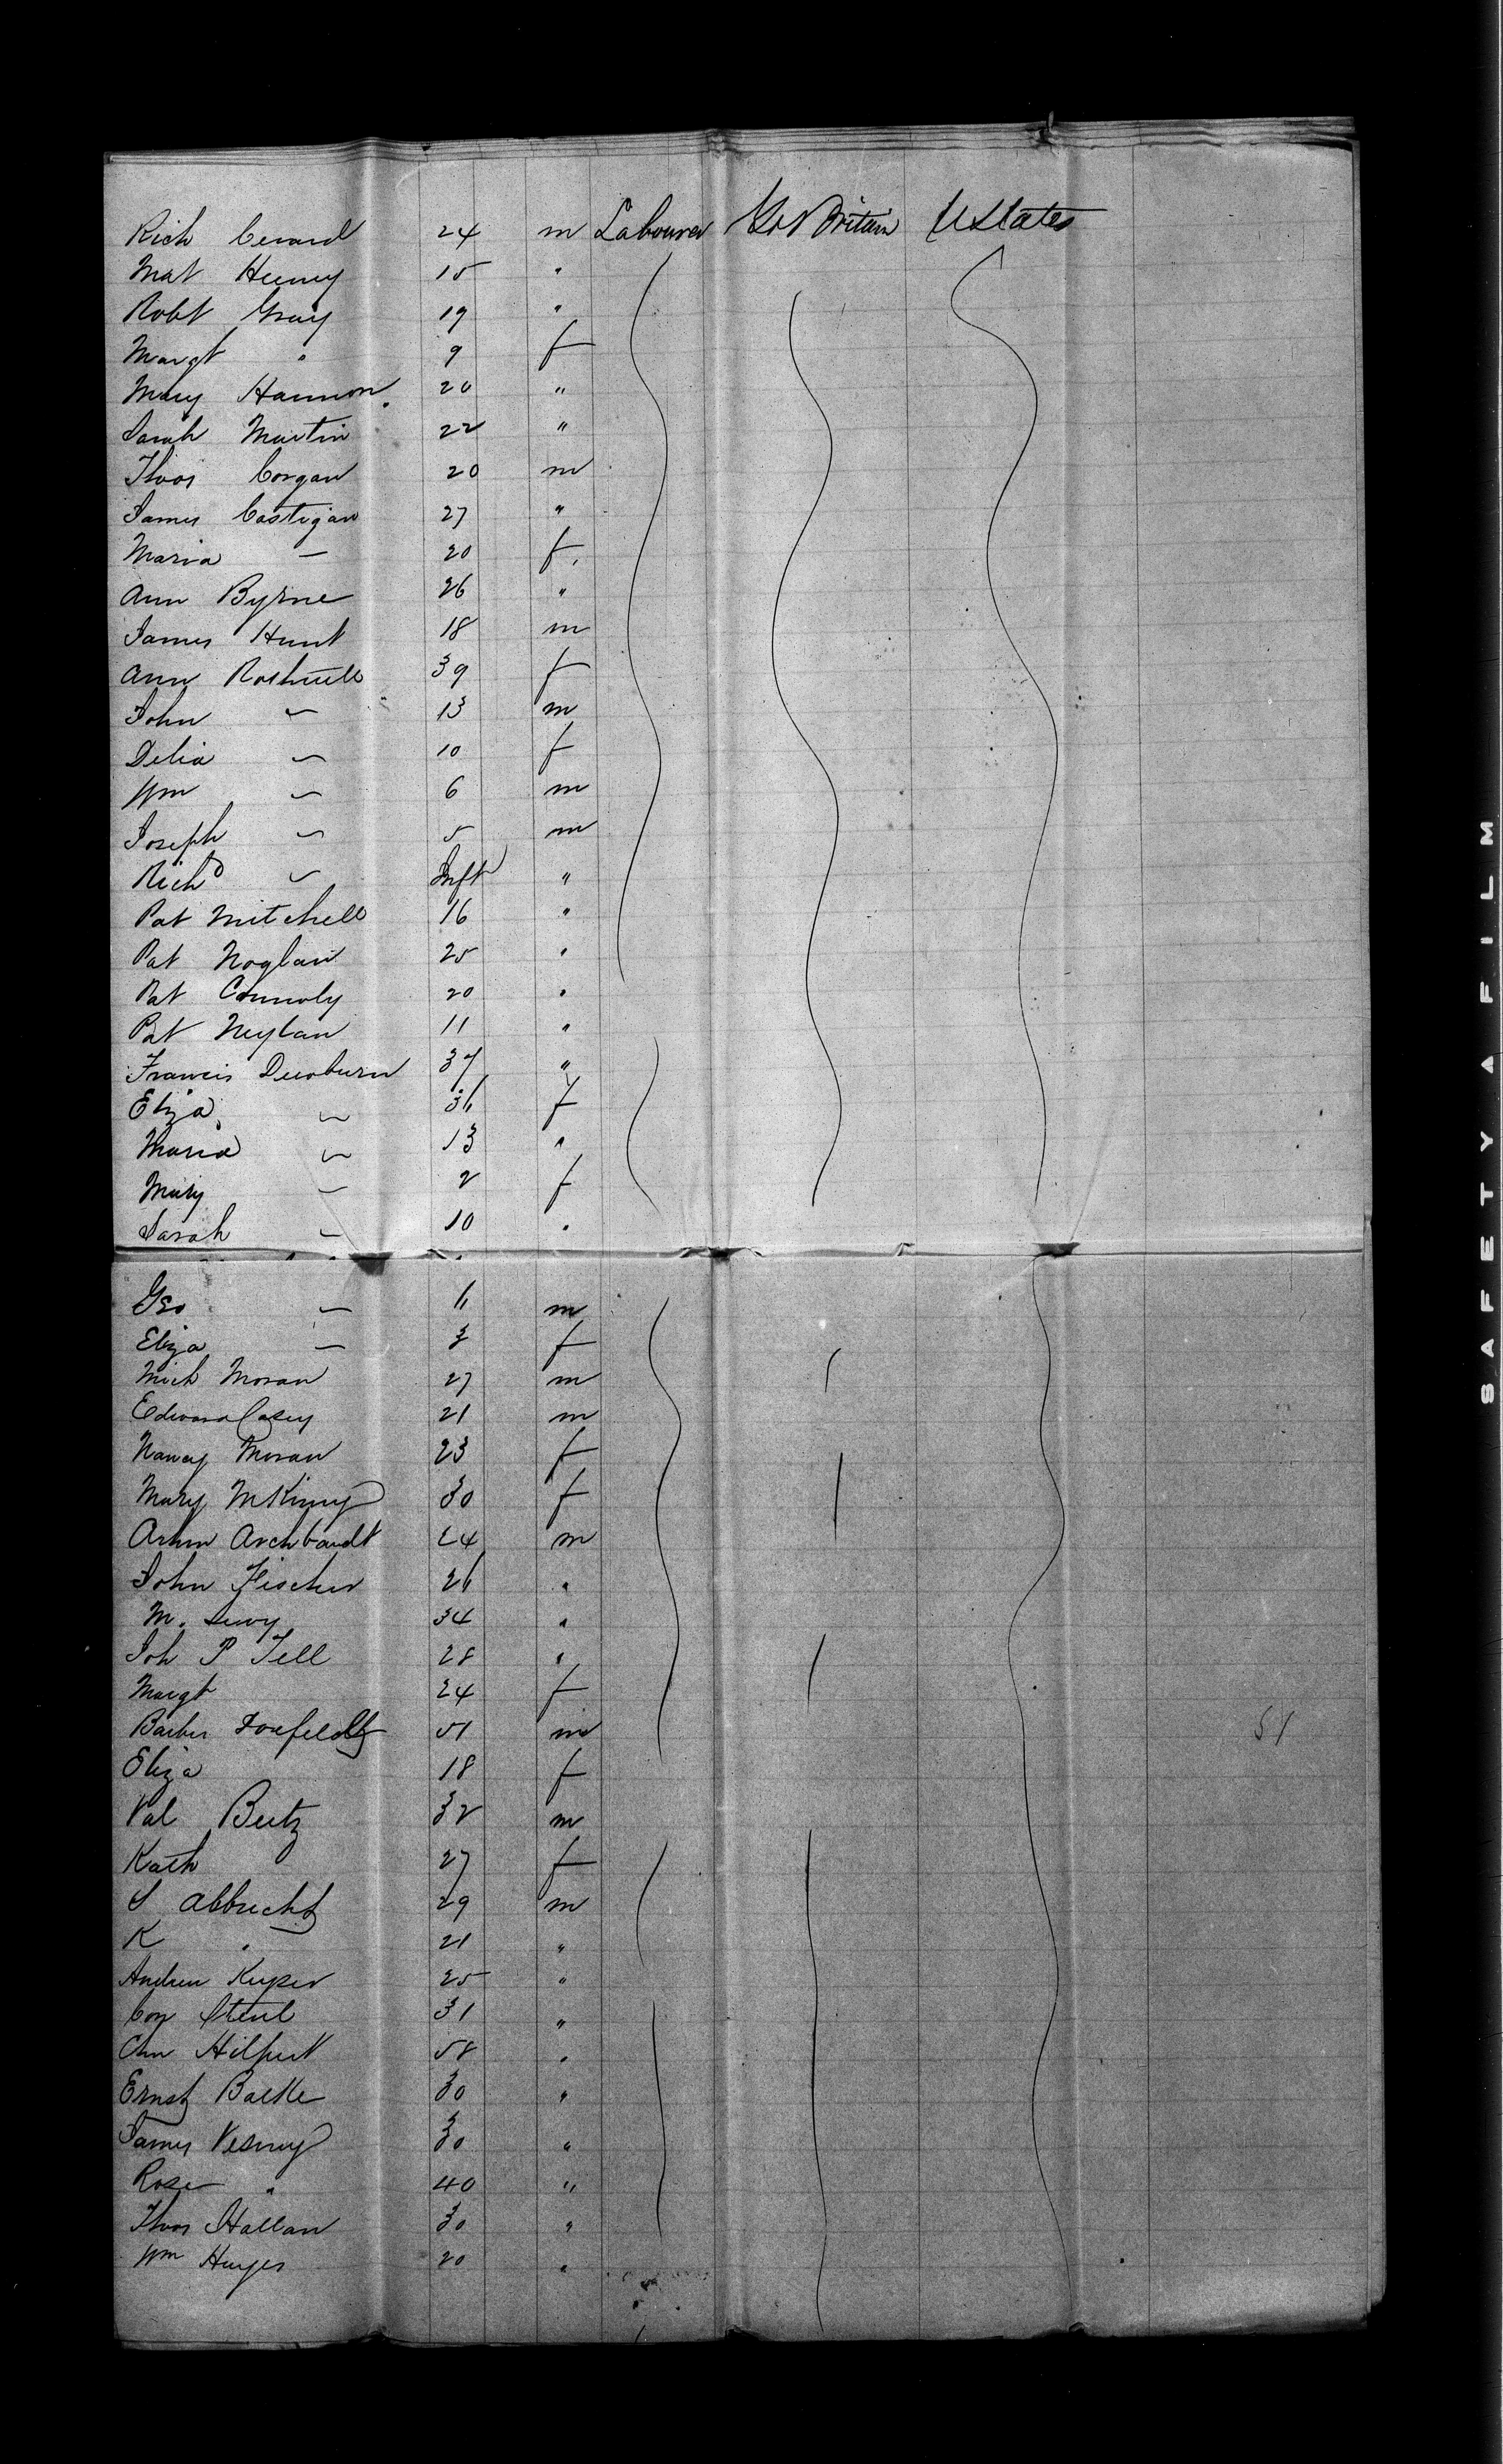 Rich Cerard 24 m Labourer Gt Britain UStates
Mat Heeney 15 "
Robt Gray 19 "
Margt " 9 f
Mary Hannon 20 "
Sarah Martin 22 "
Thos Corgan 20 m
James Costigan 27 "
Maria — 20 f
Ann Byrne 26 "
James Hunt 18 m
Ann 39 f
John — 13 m
Delia — 10 f
Wm — 6 m
Joseph — 5 m
Richd — Inft "
Pat Mitchell 16 "
Pat 25 "
Pat Connoly 20 "
Pat Neylan 11 "
Francis 37 "
Eliza — 36 f
Maria — 13 "
Mary — 2 f
Sarah — 10 "
Geo — m
Eliza — 3 f
Mich Moran 27 m
Edward Casey 21 m
Nancy Moran 23 f
Mary McKinny 30 f
Archbandt 24 m
John Fischer 26 "
M. Levy 34 "
Joh P Tell 28 "
Margt 24 f
51 m 51
Eliza 18 f
Val Beetz 32 m
Kath 27 f
S Albrecht 29 m
K " 21 "
Andrew Keyser 25 "
31 "
Hilpert 58 "
Ernst Baelke 30 "
James 30 "
Rose " 40 "
Thos Hallan 30 "
Wm Hayes 20 "
SAFETY A FILM